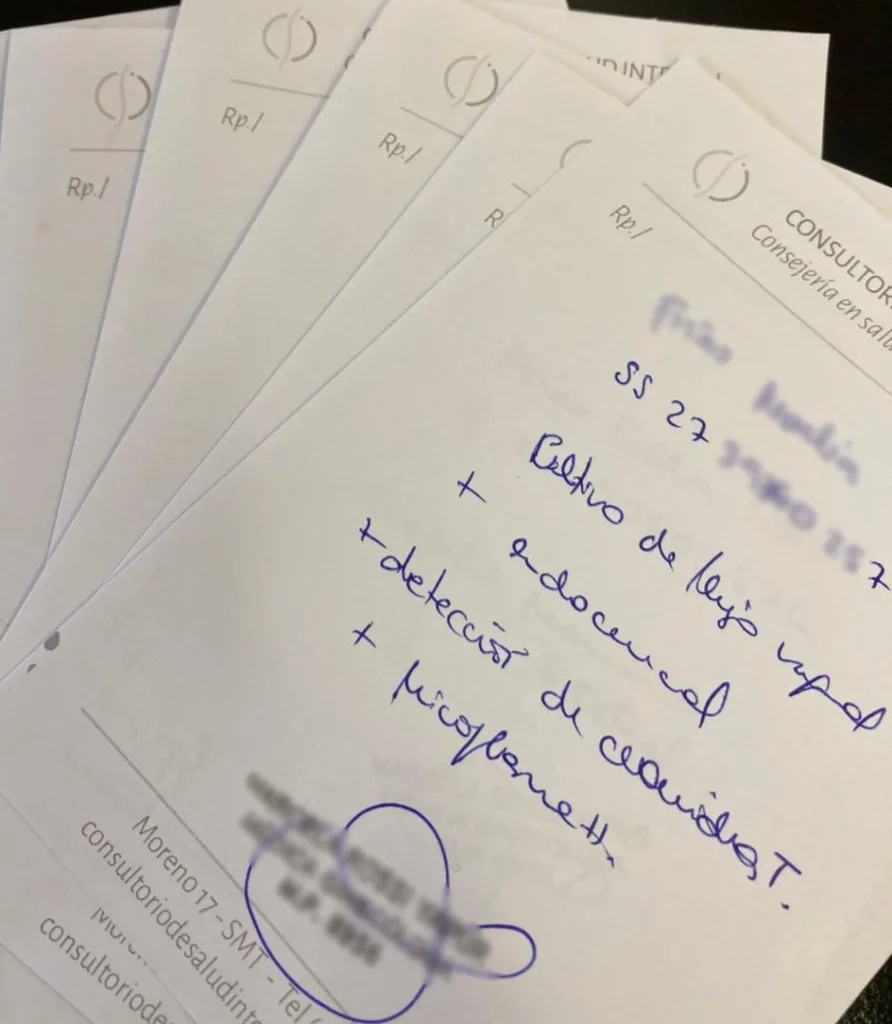 Rp./
Rp./
Rp./
R
UD INTE
Rp./
CONSULTOR
Consejería en salu
SS 27
7
Cultivo de flujo vaginal
+ endocervical
+ detección de clamidias T.
+ Micoplasma H.
Moreno 17 - SMT - Tel
consultoriodesaludinte
consultoriodes